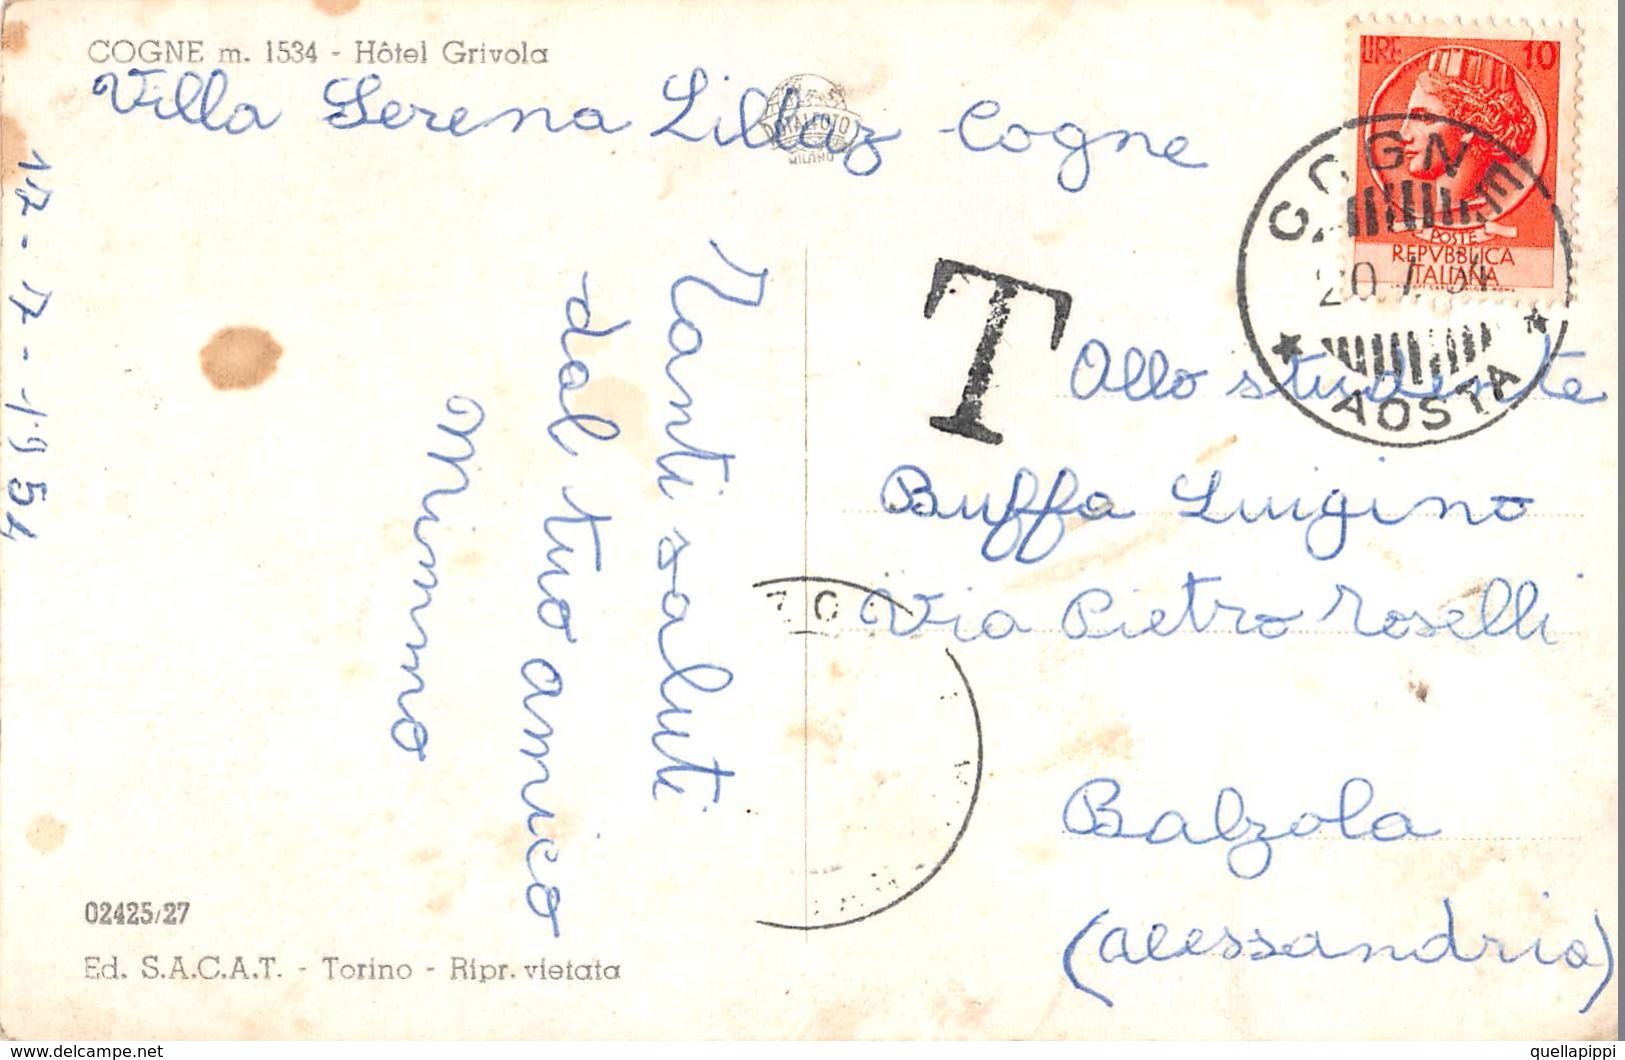 COGNE m. 1534 - Hôtel Grivola
Villa Serena Lillaz Cogne
17-7-1954
Tanti saluti
dal tuo amico
Mimmo
02425/27
Ed. S.A.C.A.T. - Torino - Ripr. vietata
MILANO
LIRE 10
POSTE
REPVBBLICA
ITALIANA
COGNE
20 7 54
* AOSTA *
T
Allo studente
Buffa Luigino
Via Pietro Roselli
Balzola
(Alessandria)
delcampe.net
quellapippi